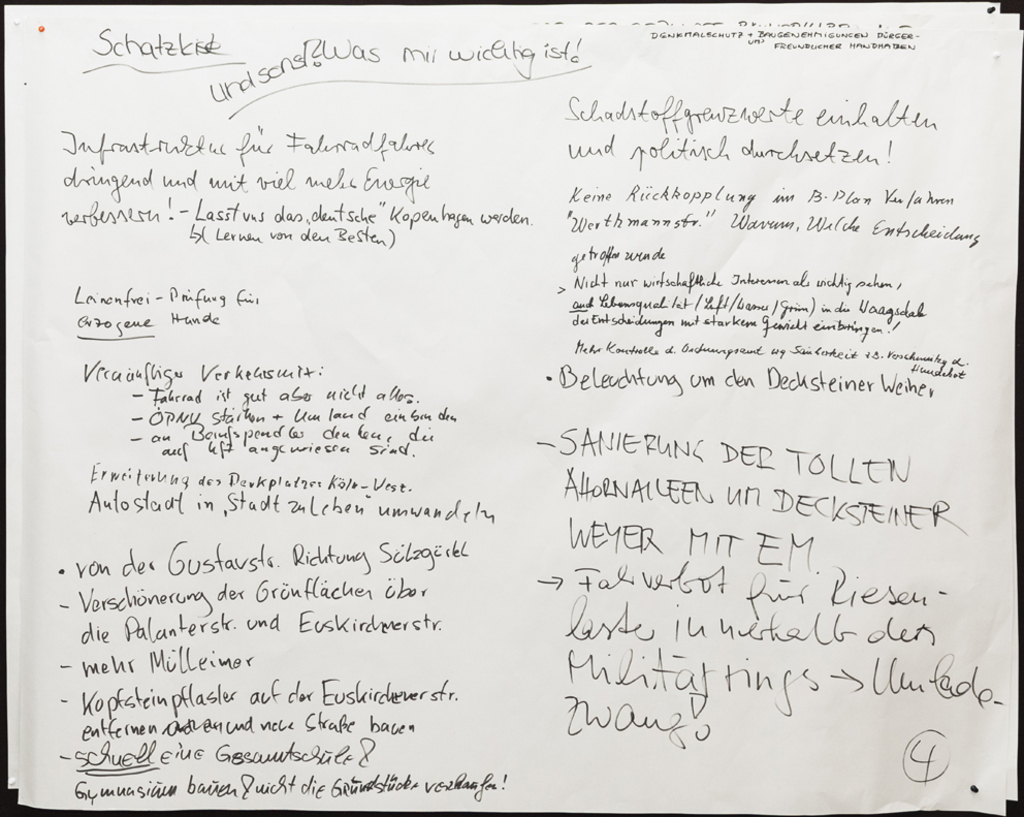 Schatzkiste
Und sonst? Was mir wichtig ist!
DENKMALSCHUTZ + BAUGENEHMIGUNGEN BÜRGER-
UND FREUNDLICHER HANDHABEN
Infrastruktur für Fahrradfahrer
dringend und mit viel mehr Energie
verbessern! - Lasst uns das "deutsche" Kopenhagen werden.
(Lernen von den Besten)
Leinenfrei-Prüfung für
erzogene Hunde
Vernünftiger Verkehrsmix:
- Fahrrad ist gut aber nicht alles.
- ÖPNV stärken + Umland einbinden
- an Berufspendler denken, die
auf KfZ angewiesen sind.
Erweiterung des Parkplatzes Köln-West.
Autostadt in "Stadt zu leben" umwandeln
• von der Gustavstr. Richtung Sülzgürtel
- Verschönerung der Grünflächen über
die Palanterstr. und Euskirchnerstr.
- mehr Mülleimer
- Kopfsteinpflaster auf der Euskirchenerstr.
entfernen und neue Straße bauen
- schnell eine Gesamtschule &
Gymnasium bauen & nicht die Grundstücke verkaufen!
Schadstoffgrenzwerte einhalten
und politisch durchsetzen!
Keine Rückkopplung im B-Plan Verfahren
"Werthmannstr." Warum, Welche Entscheidung
getroffen wurde
> Nicht nur wirtschaftliche Interessen als wichtig sehen,
auch Lebensqualität (Luft/Wasser/Grün) in die Waagschale
der Entscheidungen mit starkem Gewicht einbringen!
Mehr Kontrolle d. Ordnungsamt wg Sauberkeit z.B. Verschmutzg d.
Hundekot
• Beleuchtung um den Decksteiner Weiher
- SANIERUNG DER TOLLEN
AHORNALLEEN UM DECKSTEINER
WEYER MIT EM
→ Fahrverbot für Riesen-
laster innerhalb des
Militärrings → Umlade-
zwang!
4